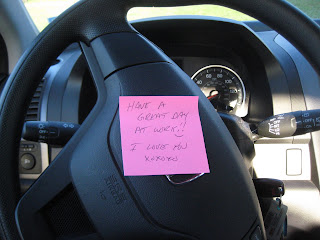 HAVE A
GREAT DAY
AT WORK!!
I LOVE YOU
XOXOXO